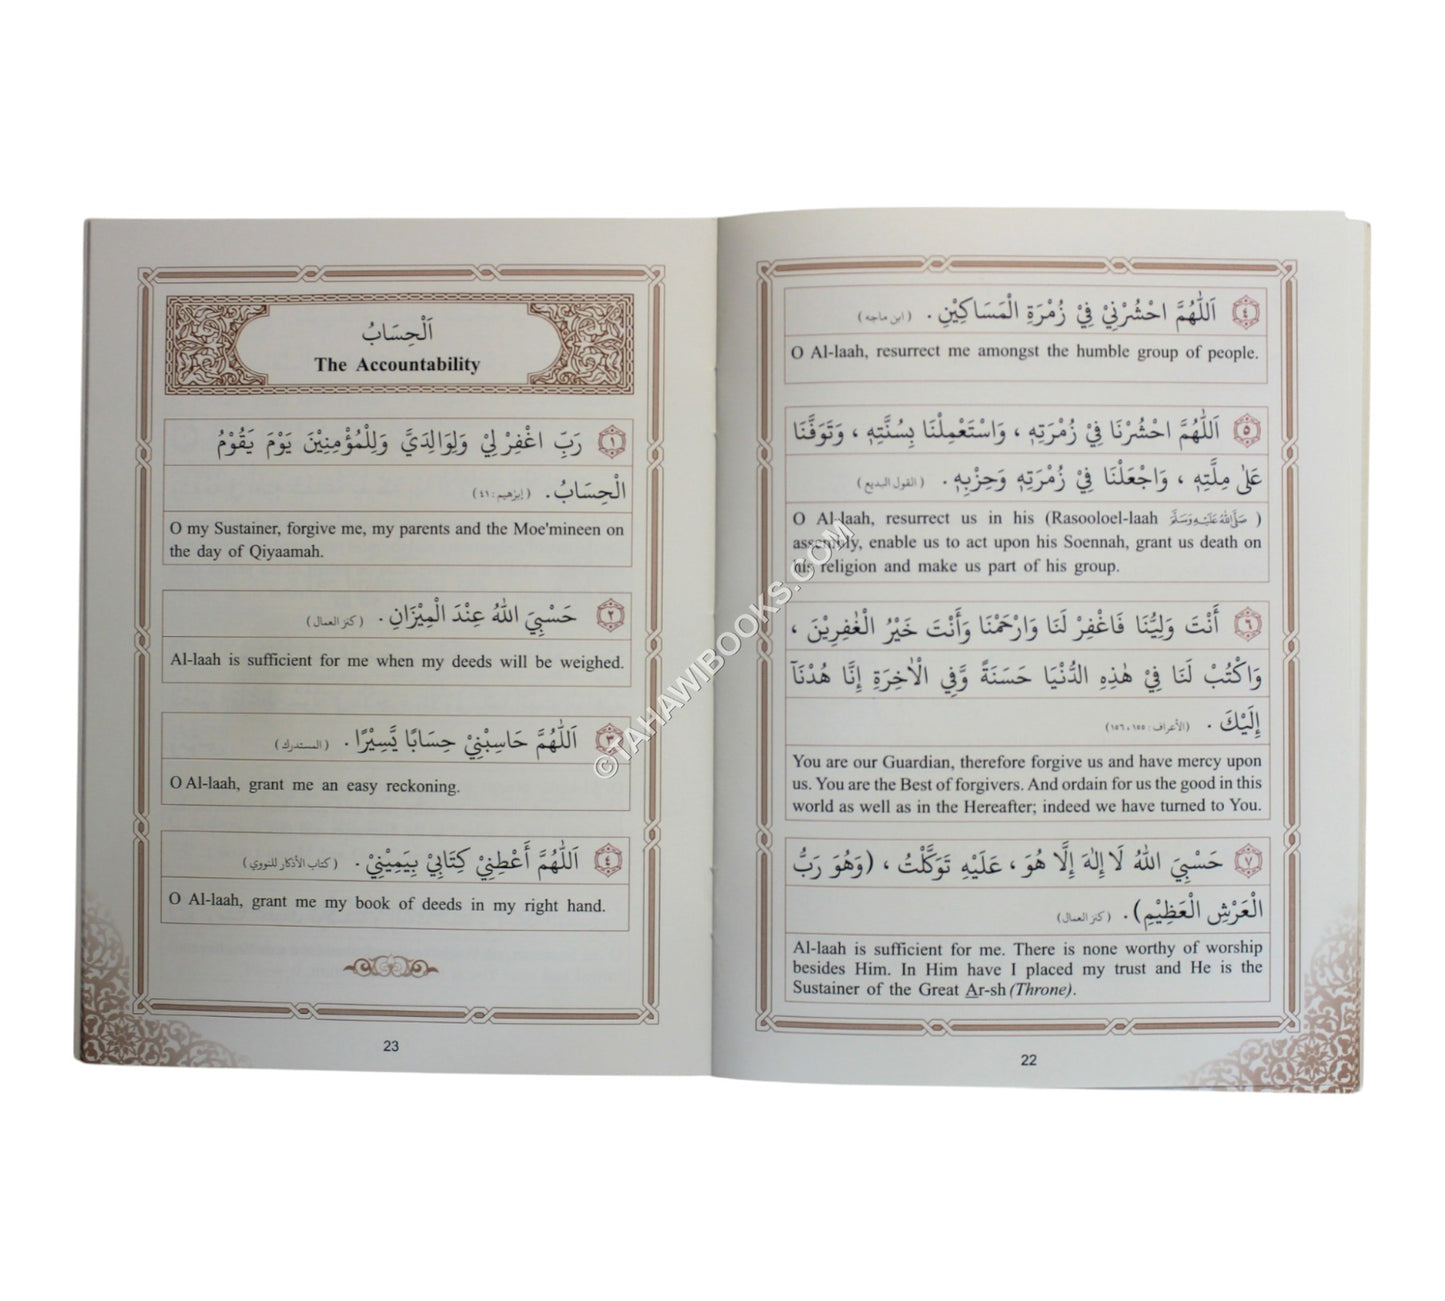 ٤ اَللّٰهُمَّ احْشُرْنِيْ فِيْ زُمْرَةِ الْمَسَاكِيْنِ . ( ابن ماجه )
O Al-laah, resurrect me amongst the humble group of people.
٥ اَللّٰهُمَّ احْشُرْنَا فِيْ زُمْرَتِهٖ ، وَاسْتَعْمِلْنَا بِسُنَّتِهٖ ، وَتَوَفَّنَا
عَلٰى مِلَّتِهٖ ، وَاجْعَلْنَا فِيْ زُمْرَتِهٖ وَحِزْبِهٖ . ( القول البديع )
O Al-laah, resurrect us in his (Rasooloel-laah صَلَّى اللهُ عَلَيْهِ وَسَلَّمَ )
assembly, enable us to act upon his Soennah, grant us death on
his religion and make us part of his group.
٦ أَنْتَ وَلِيُّنَا فَاغْفِرْ لَنَا وَارْحَمْنَا وَأَنْتَ خَيْرُ الْغٰفِرِيْنَ ،
وَاكْتُبْ لَنَا فِيْ هٰذِهِ الدُّنْيَا حَسَنَةً وَّفِي الْاٰخِرَةِ إِنَّا هُدْنَآ
إِلَيْكَ . (الأعراف : ١٥٥ ، ١٥٦)
You are our Guardian, therefore forgive us and have mercy upon
us. You are the Best of forgivers. And ordain for us the good in this
world as well as in the Hereafter; indeed we have turned to You.
٧ حَسْبِيَ اللهُ لَا إِلٰهَ إِلَّا هُوَ ، عَلَيْهِ تَوَكَّلْتُ ، (وَهُوَ رَبُّ
الْعَرْشِ الْعَظِيْمِ) . ( كنز العمال )
Al-laah is sufficient for me. There is none worthy of worship
besides Him. In Him have I placed my trust and He is the
Sustainer of the Great Ar-sh (Throne).
22
اَلْحِسَابُ
The Accountability
١ رَبِّ اغْفِرْ لِيْ وَلِوَالِدَيَّ وَلِلْمُؤْمِنِيْنَ يَوْمَ يَقُوْمُ
الْحِسَابُ . ( إبرٰهيم : ٤١ )
O my Sustainer, forgive me, my parents and the Moe'mineen on
the day of Qiyaamah.
٢ حَسْبِيَ اللهُ عِنْدَ الْمِيْزَانِ . ( كنز العمال )
Al-laah is sufficient for me when my deeds will be weighed.
٣ اَللّٰهُمَّ حَاسِبْنِيْ حِسَابًا يَّسِيْرًا . ( المستدرك )
O Al-laah, grant me an easy reckoning.
٤ اَللّٰهُمَّ أَعْطِنِيْ كِتَابِيْ بِيَمِيْنِيْ . ( كتاب الأذكار للنووي )
O Al-laah, grant me my book of deeds in my right hand.
23
©TAHAWIBOOKS.COM